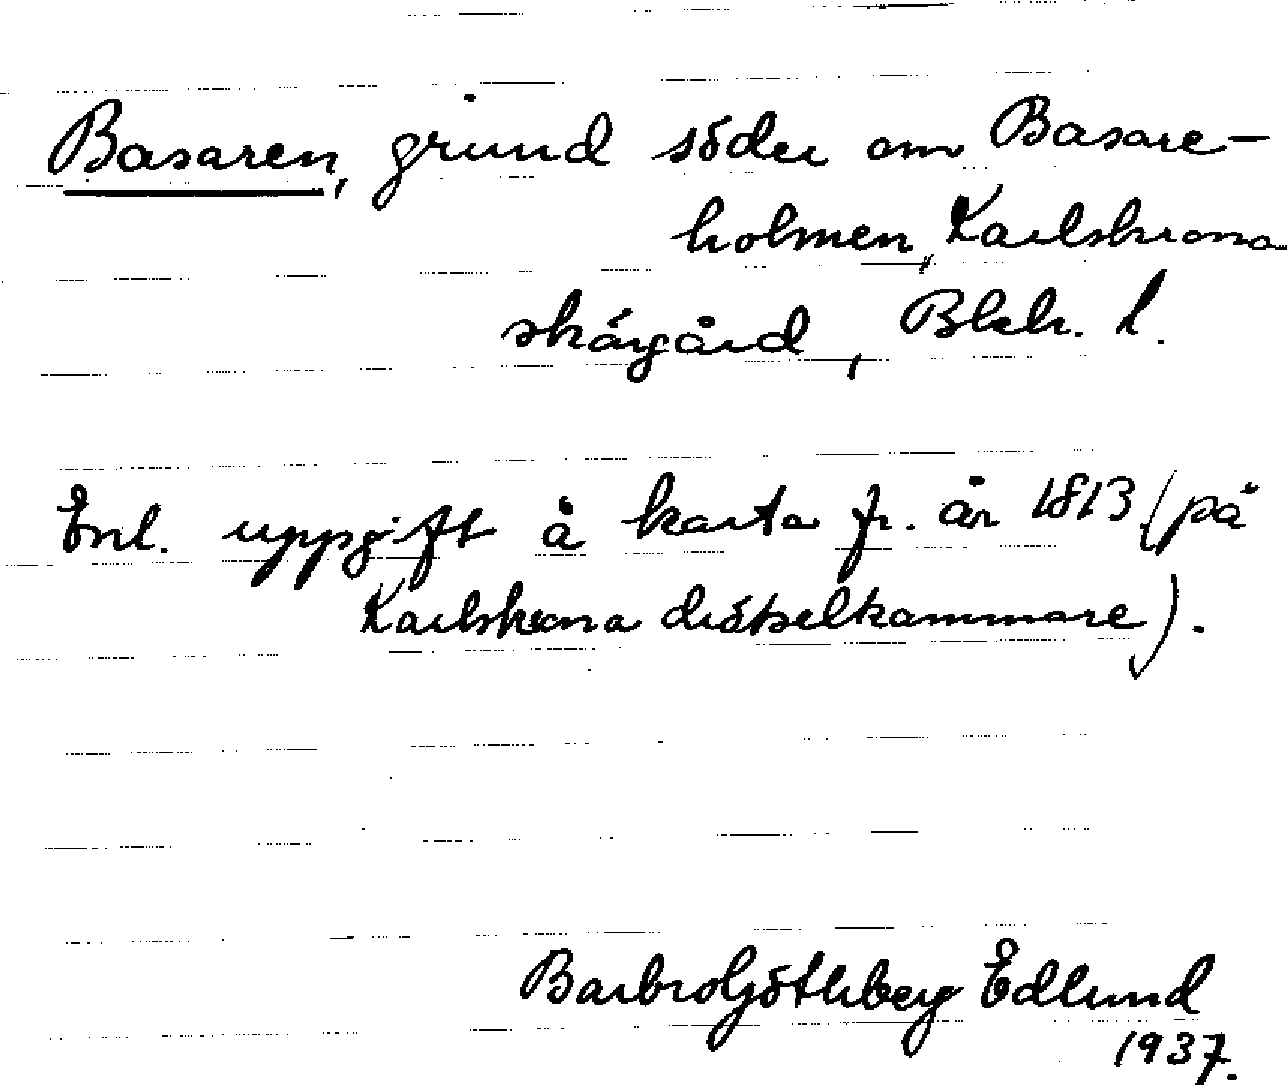 Basaren, grund söder om Basare-
holmen, Karlskrona
skärgård, Blek. l.
Enl. uppgift å karta fr. år 1813 (på
Karlskrona distrikammare).
Barbro Götheberg Edlund
1937.